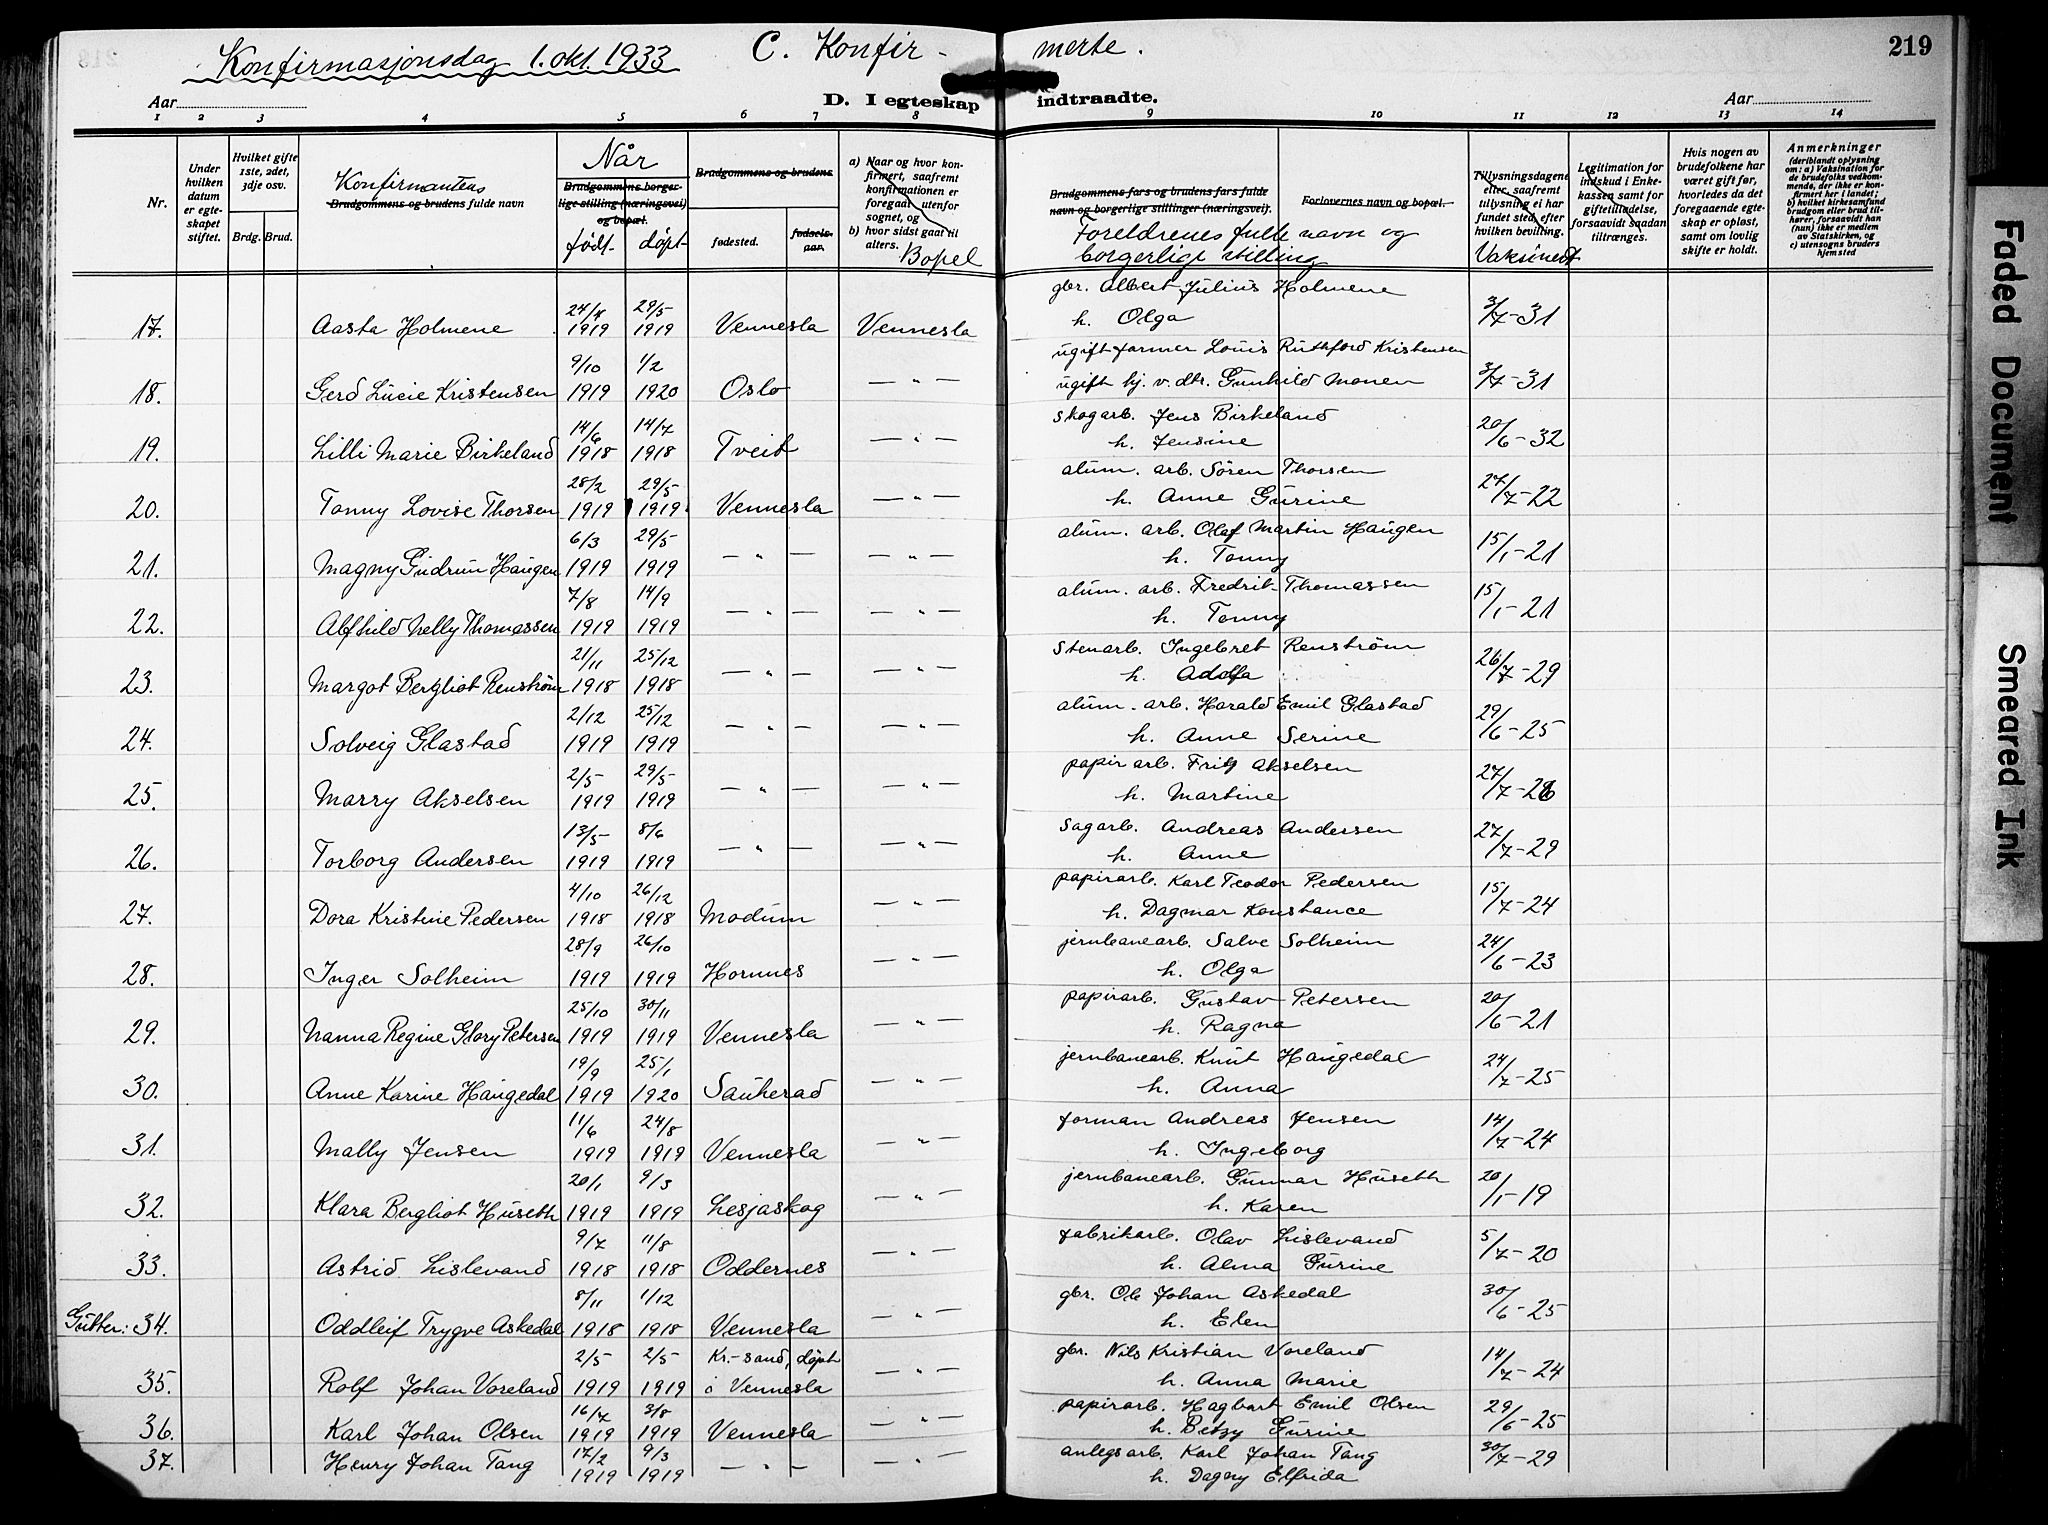 Konfirmasjonsdag 1. okt. 1933 C. Konfir- merte. 219
Aar D. I egteskap indtraadte. Aar
1 2 3 4 5 6 7 8 9 10 11 12 13 14
Nr.
Under hvilken datum er egteskapet stiftet.
Hvilket gifte 1ste, 2det, 3dje osv.
Brdg. Brud.
Konfirmantens
Brudgommens og brudens fulde navn
Når
Brudgommens borgerlige stilling (næringsvei) og bopæl.
født. døpt
Brudgommens og brudens
fødested. fødselsaar.
a) Naar og hvor konfirmert, saafremt konfirmationen er foregaat utenfor sognet, og
b) hvor sidst gaat til alters.
Bopel
Brudgommens fars og brudens fars fulde navn og borgerlige stillinger (næringsvei).
Foreldrenes fulle navn og
borgerlige stilling
Forlovernes navn og bopæl.
Tillysningsdagene eller, saafremt tillysning ei har fundet sted, efter hvilken bevilling.
Vaksinert
Legitimation for indskud i Enkekassen samt for giftetilladelse, forsaavidt saadan tiltrænges.
Hvis nogen av brudefolkene har været gift før, hvorledes da det foregaaende egteskap er opløst, samt om lovlig skifte er holdt.
Anmerkninger
(deriblandt oplysning om: a) Vaksination for de brudefolks vedkommende, der ikke er konfirmert her i landet; b) hvilket kirkesamfund brudgom eller brud tilhører, forsaavidt han (hun) ikke er medlem av Statskirken, og c) utensogns bruders hjemsted
17. Aasta Holmene 24/4 1919 29/5 1919 Vennesla Vennesla gbr. Albert Julius Holmene h. Olga 3/7-31
18. Gerd Lucie Kristensen 9/10 1919 1/2 1920 Oslo — " — ugift farmer Louis Ruthford Kristensen ugift hj. v. dtr. Gunhild Monen 3/7-31
19. Lilli Marie Birkeland 14/6 1918 14/7 1918 Tveit — " — skogarb. Jens Birkeland h. Jensine 20/6-32
20. Tonny Lovise Thorsen 28/2 1919 29/5 1919 Vennesla — " — alum. arb. Sören Thorsen h. Anne Gurine 27/7-22
21. Magny Gudrun Haugen 6/3 1919 29/5 1919 — " — — " — alum. arb. Olaf Martin Haugen h. Tonny 15/1-21
22. Alfhild Nelly Thomassen 7/8 1919 14/9 1919 — " — — " — alum. arb. Fredrik Thomassen h. Tonny 15/1-21
23. Margot Bergliot Renström 21/11 1918 25/12 1918 — " — — " — stenarb. Ingebret Renström h. Adolfa 26/7-29
24. Solveig Glastad 2/12 1919 25/12 1919 — " — — " — alum. arb. Harald Emil Glastad h. Anne Serine 29/6-25
25. Marry Akselsen 2/5 1919 29/5 1919 — " — — " — papirarb. Fritz Akselsen h. Martine 27/7-26
26. Torborg Andersen 13/5 1919 8/6 1919 — " — — " — sagarb. Andreas Andersen h. Anne 27/7-29
27. Dora Kristine Pedersen 4/10 1918 26/12 1918 Modum — " — papirarb. Karl Teodor Pedersen h. Dagmar Konstance 15/7-24
28. Inger Solheim 28/9 1919 26/10 1919 Hornnes — " — jernbanearb. Salve Solheim h. Olga 24/6-23
29. Nanna Regine Glory Petersen 25/10 1919 30/11 1919 Vennesla — " — papirarb. Gustav Petersen h. Ragna 20/6-21
30. Anne Karine Haugedal 19/9 1919 25/1 1920 Sauherad — " — jernbanearb. Knut Haugedal h. Anna 24/7-25
31. Mally Jensen 11/6 1919 24/8 1919 Vennesla — " — forman Andreas Jensen h. Ingeborg 14/7-24
32. Klara Bergliot Huseth 20/1 1919 9/3 1919 Lesjaskog — " — jernbanearb. Gunnar Huseth h. Karen 20/1-19
33. Astrid Lislevand 9/7 1918 11/8 1918 Oddernes — " — fabrikarb. Olav Lislevand h. Alma Gurine 5/7-20
Gutter: 34. Oddleif Trygve Askedal 8/11 1918 1/12 1918 Vennesla — " — gbr. Ole Johan Askedal h. Elen 30/6-25
35. Rolf Johan Voreland 2/5 1919 2/5 1919 Kr.-sand, døpt i Vennesla — " — gbr. Nils Kristian Voreland h. Anna Marie 14/7-24
36. Karl Johan Olsen 16/7 1919 3/8 1919 Vennesla — " — papirarb. Hagbart Emil Olsen h. Betzy Gurine 29/6-25
37. Henry Johan Tang 17/2 1919 9/3 1919 — " — — " — anlegsarb. Karl Johan Tang h. Dagny Elfrida 30/7-29
Faded Document
Smeared Ink